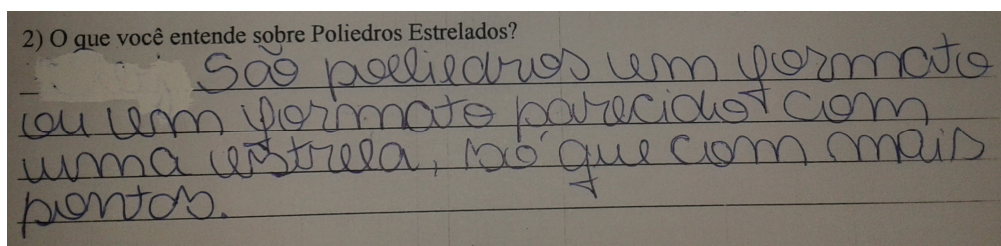 2) O que você entende sobre Poliedros Estrelados?
São poliedros em formato
ou em formato parecido com
uma estrela, só que com mais
pontas.